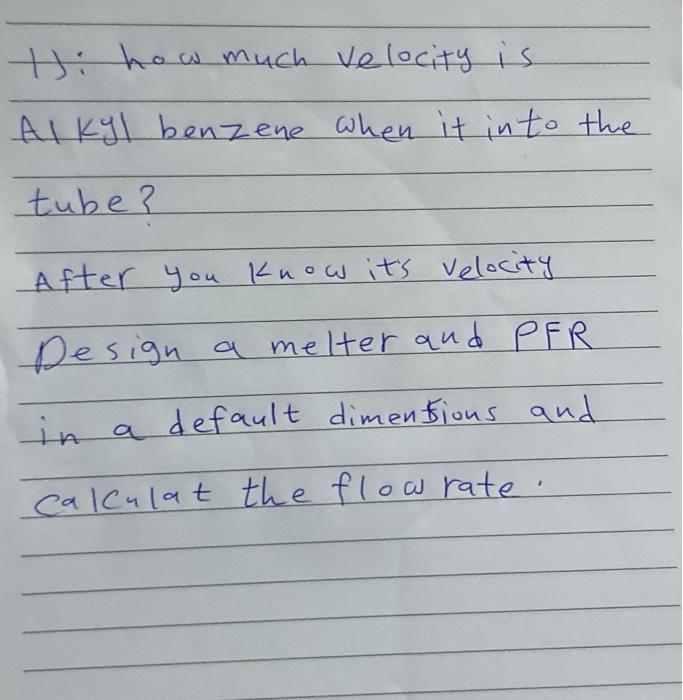 H: how much velocity is
Alkyl benzene when it into the
tube?
After you know it's velocity
Design a melter and PFR
in a default dimensions and
calculat the flow rate.